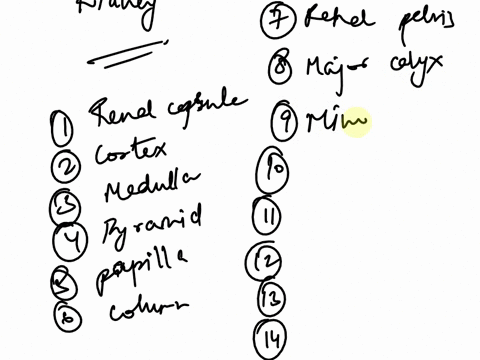 Kidney
1 Renal capsule
2 Cortex
3 Medulla
4 Pyramid
5 papilla
6 column
7 Renal pelvis
8 Major calyx
9 Mino
10
11
12
13
14